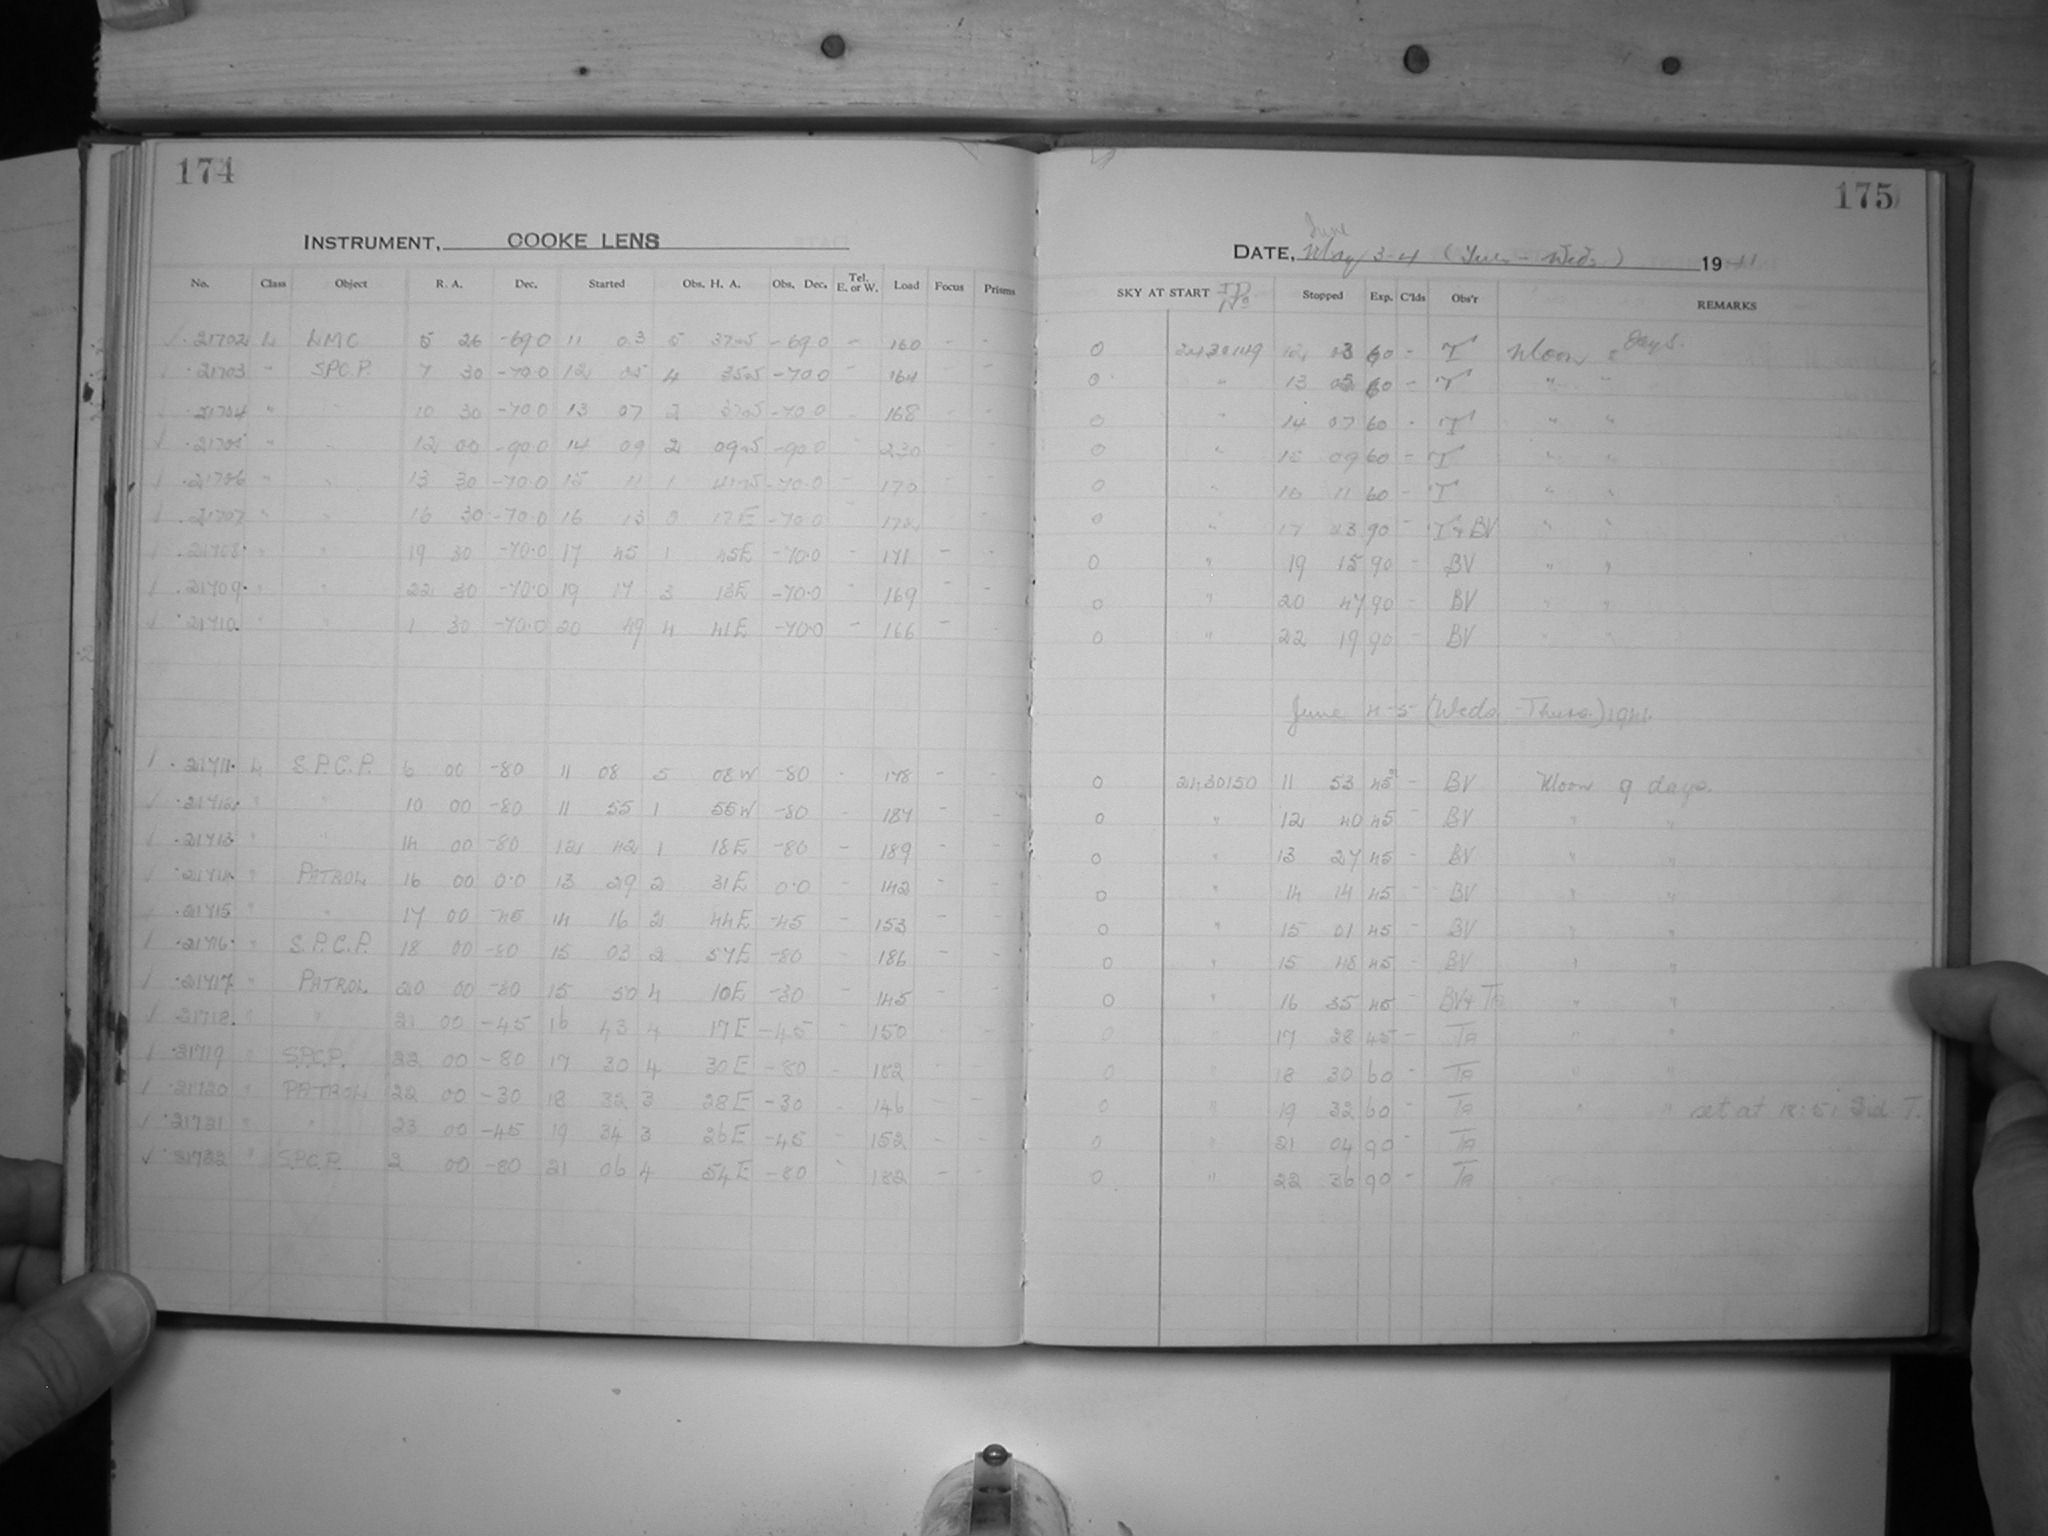 174
INSTRUMENT, COOKE LENS
No. Class Object R. A. Dec. Started Obs. H. A. Obs. Dec. Tel. E. or W. Load Focus Prisms
21702 L LMC 5 26 -69 0 11 03 5 -69 0 - 160 - -
21703 " S.P.C.P. 7 30 -70 0 12 05 4 -70 0 - 164 - -
21704 " " 10 30 -70 0 13 07 -70 0 168 - -
21705 " " 12 00 -90.0 14 09 2 -90.0 230
21706 " " 13 30 -70.0 15 11 1 -70.0 - 170 -
21707 " " 16 30 -70.0 16 13 17E -70.0 -
21708 " " 19 30 -70.0 17 45 1 45E -70.0 - 171 - -
21709 " " 22 30 -70.0 19 17 3 13E -70.0 - 169 - -
21710 " " 1 30 -70.0 20 49 4 41E -70.0 - 166 - -
21711 L S.P.C.P. 6 00 -80 11 08 5 08W -80 - 178 - -
21712 " " 10 00 -80 11 55 1 55W -80 - 187 - -
21713 " " 14 00 -80 12 42 1 18E -80 - 189 - -
21714 " PATROL 16 00 0.0 13 29 2 31E 0.0 - 142 - -
21715 " " 17 00 -45 14 16 2 44E -45 - 153 - -
21716 " S.P.C.P. 18 00 -80 15 03 2 57E -80 - 186 - -
21717 " PATROL 20 00 -30 15 50 4 10E -30 - 145 - -
21718 " " 21 00 -45 16 43 4 17E -45 - 150 - -
21719 " S.P.C.P. 22 00 -80 17 30 4 30E -80 - 182 - -
21720 " PATROL 22 00 -30 18 32 3 28E -30 - 146 - -
21721 " " 23 00 -45 19 34 3 26E -45 - 152 - -
21722 " S.P.C.P. 2 00 -80 21 06 4 54E -80 182 - -
175
June
DATE, May 3-4 (Tues - Weds) 1941
SKY AT START JD No Stopped Exp. C'lds Obs'r REMARKS
0 2430149 12 03 60 - T Moon 8 days.
0 " 13 05 60 - T " "
0 " 14 07 60 - T " "
0 " 15 09 60 - T " "
0 " 16 11 60 - T " "
0 " 17 43 90 - T & BV " "
0 " 19 15 90 - BV " "
0 " 20 47 90 - BV " "
0 " 22 19 90 - BV
June 4-5 (Weds. - Thurs.) 1941.
0 2430150 11 53 45 - BV Moon 9 days.
0 " 12 40 45 - BV " "
0 " 13 27 45 - BV " "
0 " 14 14 45 - BV " "
0 " 15 01 45 - BV " "
0 " 15 48 45 - BV " "
0 " 16 35 45 - BV & Ta " "
0 " 17 28 45 - Ta " "
0 " 18 30 60 - Ta " "
0 " 19 32 60 - Ta " " set at 18:51 Sid T.
0 " 21 04 90 - Ta
0 " 22 36 90 - Ta